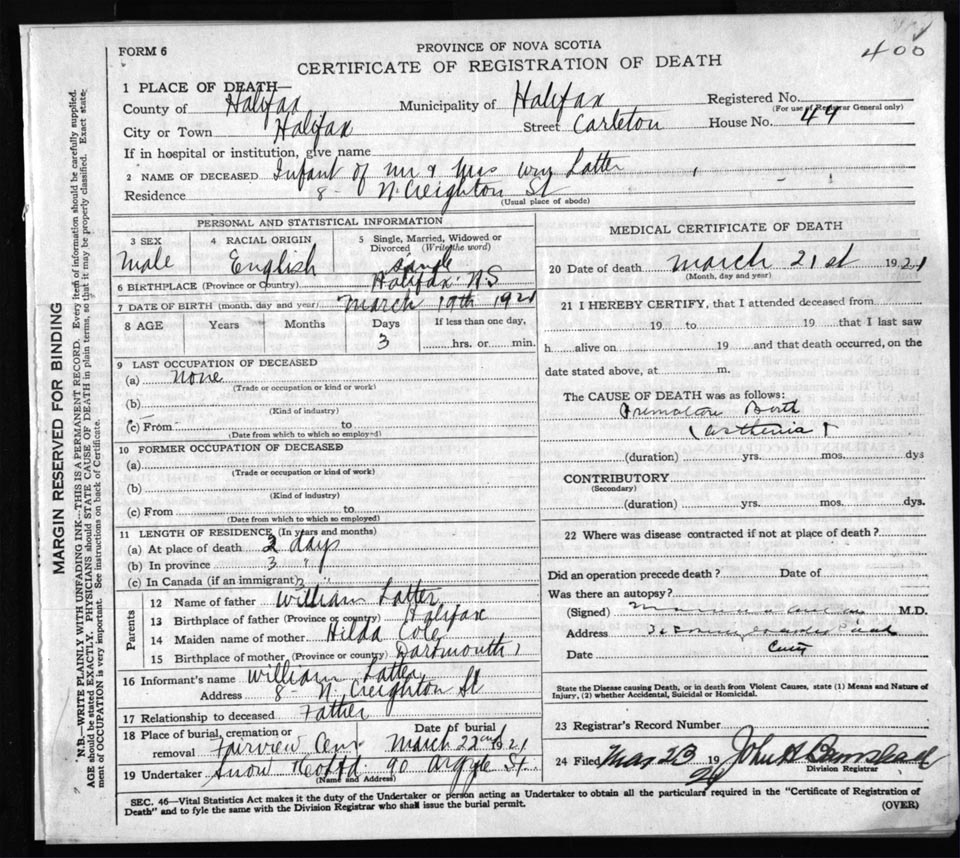 FORM 6
PROVINCE OF NOVA SCOTIA
400
CERTIFICATE OF REGISTRATION OF DEATH
1 PLACE OF DEATH—
County of Halifax Municipality of Halifax Registered No.
(For use of Registrar General only)
City or Town Halifax Street Carleton House No. 49
If in hospital or institution, give name
2 NAME OF DECEASED Infant of Mr & Mrs Wm Latter
Residence 8 - N. Creighton St
(Usual place of abode)
PERSONAL AND STATISTICAL INFORMATION
3 SEX 4 RACIAL ORIGIN 5 Single, Married, Widowed or Divorced (Write the word)
Male English Single
6 BIRTHPLACE (Province or Country) Halifax N.S
7 DATE OF BIRTH (month, day and year) March 19th 1921
8 AGE Years Months Days If less than one day,
3 hrs. or min.
9 LAST OCCUPATION OF DECEASED
(a) None
(Trade or occupation or kind or work)
(b)
(Kind of industry)
(c) From to
(Date from which to which so employed)
10 FORMER OCCUPATION OF DECEASED
(a)
(Trade or occupation or kind of work)
(b)
(Kind of industry)
(c) From to
(Date from which to which so employed)
11 LENGTH OF RESIDENCE (In years and months)
(a) At place of death 2 days
(b) In province 3 "
(c) In Canada (if an immigrant) 3 "
Parents
12 Name of father William Latter
13 Birthplace of father (Province or country) Halifax
14 Maiden name of mother Hilda Cole
15 Birthplace of mother (Province or country) Dartmouth
16 Informant's name William Latter
Address 8 - N. Creighton St
17 Relationship to deceased Father
18 Place of burial, cremation or removal Fairview Cem Date of burial March 22nd 1921
19 Undertaker Snow & Co Ltd. 90 Argyle St.
(Name and Address)
MEDICAL CERTIFICATE OF DEATH
20 Date of death March 21st 1921
(Month, day and year)
21 I HEREBY CERTIFY, that I attended deceased from
19 to 19 that I last saw
h alive on 19 and that death occurred, on the
date stated above, at m.
The CAUSE OF DEATH was as follows:
Premature Birth
(asthenia)
(duration) yrs. mos. dys
CONTRIBUTORY
(Secondary)
(duration) yrs. mos. dys.
22 Where was disease contracted if not at place of death?
Did an operation precede death? Date of
Was there an autopsy?
(Signed) M.D.
Address
City
Date
State the Disease causing Death, or in death from Violent Causes, state (1) Means and Nature of
Injury, (2) whether Accidental, Suicidal or Homicidal.
23 Registrar's Record Number
24 Filed Mar 23 19 21 John A
Division Registrar
SEC. 46—Vital Statistics Act makes it the duty of the Undertaker or person acting as Undertaker to obtain all the particulars required in the "Certificate of Registration of
Death" and to fyle the same with the Division Registrar who shall issue the burial permit.
(OVER)
MARGIN RESERVED FOR BINDING
N.B.—WRITE PLAINLY WITH UNFADING INK—THIS IS A PERMANENT RECORD. Every item of information should be carefully supplied.
AGE should be stated EXACTLY. PHYSICIANS should STATE CAUSE OF DEATH in plain terms, so that it may be properly classified. Exact state-
ment of OCCUPATION is very important. See instructions on back of Certificate.